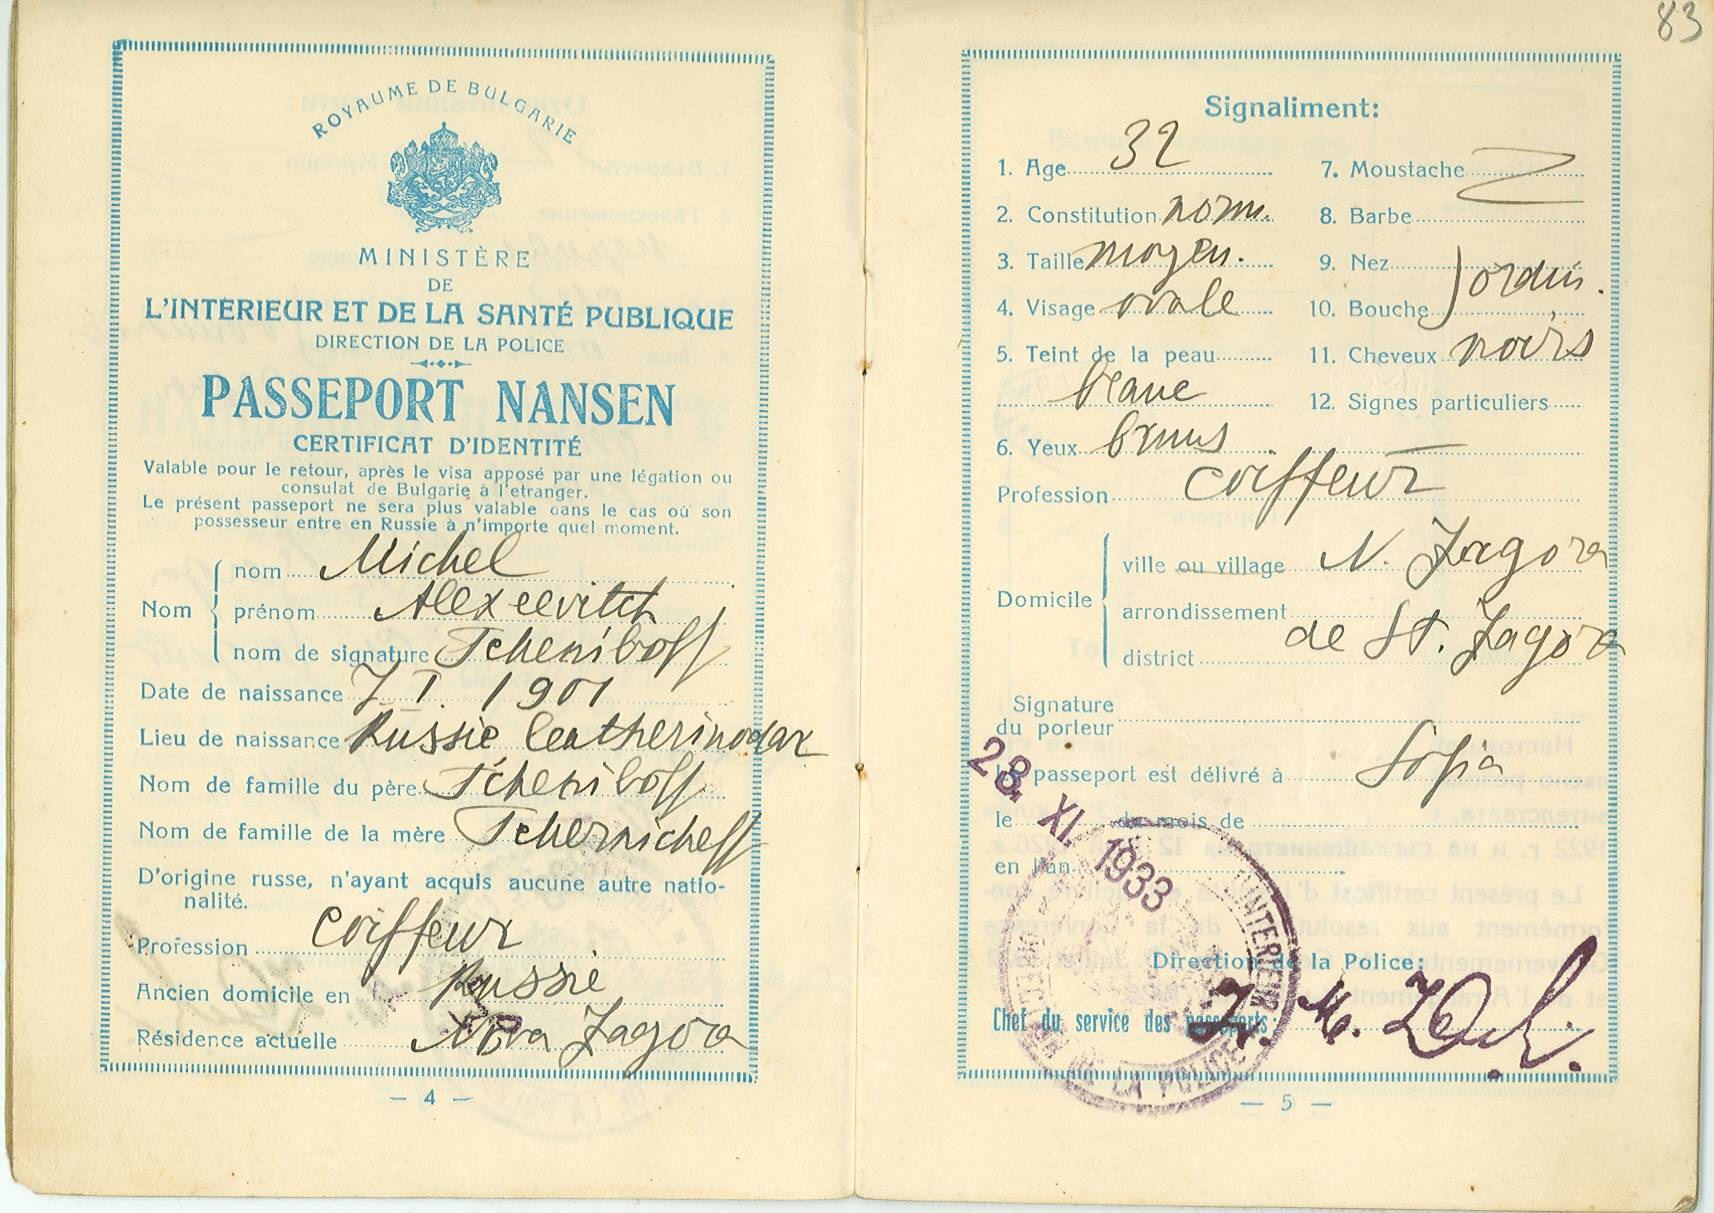 83
ROYAUME DE BULGARIE
MINISTÈRE
DE
L'INTÉRIEUR ET DE LA SANTÉ PUBLIQUE
DIRECTION DE LA POLICE
PASSEPORT NANSEN
CERTIFICAT D'IDENTITÉ
Valable pour le retour, après le visa apposé par une légation ou
consulat de Bulgarie à l'etranger.
Le présent passeport ne sera plus valable dans le cas où son
possesseur entre en Russie à n'importe quel moment.
Nom
nom Michel
prénom Alexeevitch
nom de signature Tcheniboff
Date de naissance 7. I. 1901
Lieu de naissance Russie
Nom de famille du père Tcheniboff
Nom de famille de la mère Tchernicheff
D'origine russe, n'ayant acquis aucune autre natio-
nalité.
Profession coiffeur
Ancien domicile en Russie
Résidence actuelle Nova Zagora
— 4 —
Signaliment:
1. Age 32
2. Constitution norm.
3. Taille moyen.
4. Visage ovale
5. Teint de la peau
6. Yeux bruns
7. Moustache
8. Barbe
9. Nez
10. Bouche ordin.
11. Cheveux noirs
12. Signes particuliers
Profession coiffeur
Domicile
ville ou village N. Zagora
arrondissement
de St. Zagora
district
Signature
du porteur
passeport est délivré à Sofia
28. XI. 1933
le du mois de
en l'an
Direction de la Police:
Chef du service des passeports:
DE LA POLICE
— 5 —